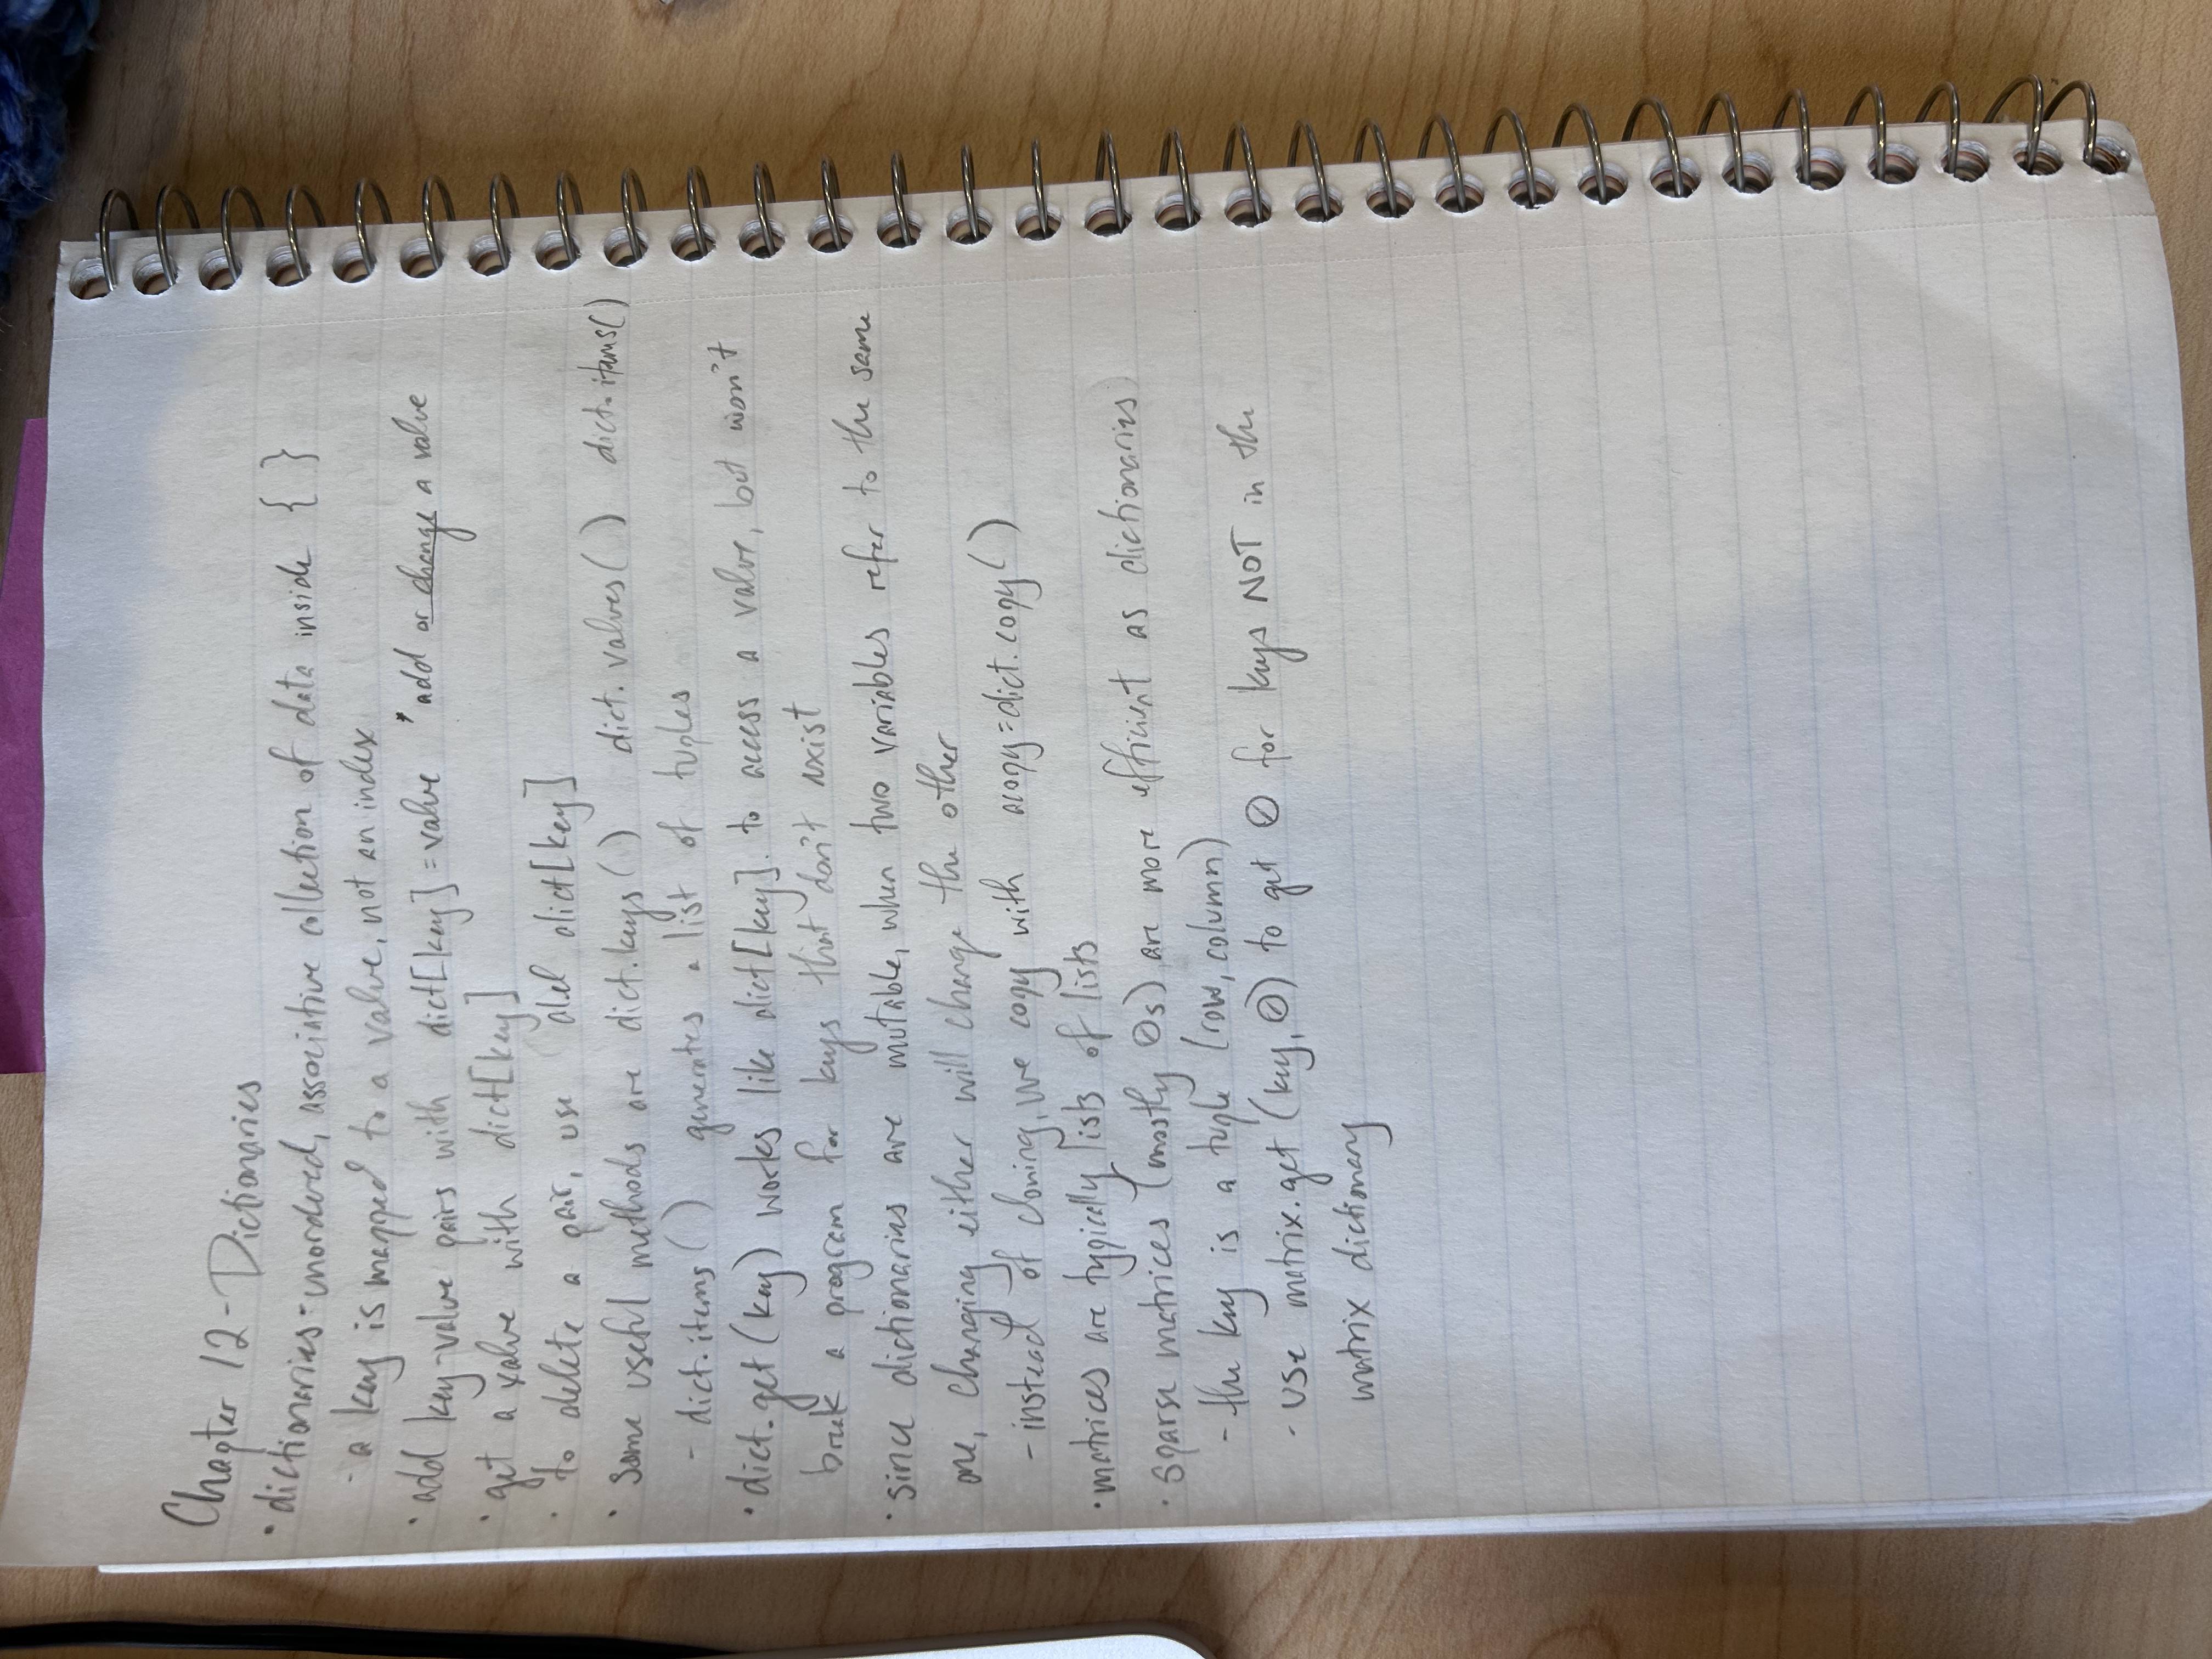 Chapter 12 - Dictionaries
• dictionaries - unordered, associative collection of data inside { }
- a key is mapped to a value, not an index
• add key-value pairs with dict[key] = value * add or change a value
• get a value with dict[key]
• to delete a pair, use del dict[key]
• some useful methods are dict.keys() dict.values() dict.items()
- dict.items() generates a list of tuples
• dict.get(key) works like dict[key] to access a value, but won't
break a program for keys that don't exist
• since dictionaries are mutable, when two variables refer to the same
one, changing either will change the other
- instead of cloning, we copy with acopy=dict.copy()
• matrices are typically lists of lists
• sparse matrices (mostly 0s) are more efficient as dictionaries
- the key is a tuple (row, column)
- use matrix.get(key, 0) to get 0 for keys NOT in the
matrix dictionary